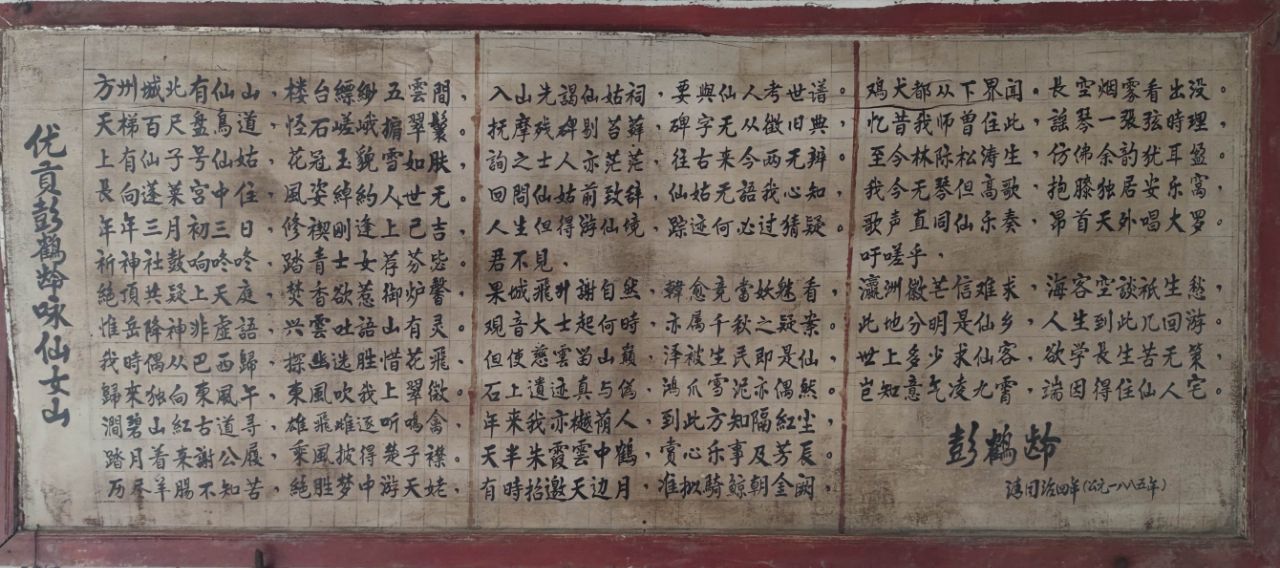 优貢彭鶴龄咏仙女山
方州城北有仙山，楼台縹紗五雲間，
天梯百尺盤鳥道，怪石嵯峨掮翠鬟。
上有仙子号仙姑，花冠玉貌雪如肤，
長向蓬莱宫中住，風姿綽約人世无。
年年三月初三日，修禊剛逢上巳吉，
祈神社鼓响咚咚，踏青士女荐芬苾。
絕頂共疑上天庭，焚香欲惹御炉馨，
惟岳降神非虚語，兴雲吐語山有灵。
我時偶从巴西歸，探幽选胜惜花飛，
歸來独向東風午，東風吹我上翠微。
澗碧山紅古道寻，雄飛雌逐听鳴禽，
踏月着来謝公屐，乘風披得楚子襟。
历尽羊腸不知苦，絕胜梦中游天姥，
入山先謁仙姑祠，要與仙人考世谱。
抚摩残碑剔苔蘚，碑字无从徵旧典，
詢之士人亦茫茫，往古来今两无辨。
回問仙姑前致辞，仙姑无語我心知，
人生但得游仙境，踪迹何必过猜疑。
君不見，
果城飛升謝自然，韓愈竟當妖魅看，
观音大士起何時，亦属千秋之疑案。
但使慈雲留山巔，泽被生民即是仙，
石上遺迹真与偽，鴻爪雪泥亦偶然。
年来我亦樾荫人，到此方知隔紅尘，
天半朱霞雲中鶴，赏心乐事及芳辰。
有時招邀天边月，准拟騎鲸朝金闕，
鸡犬都从下界聞。長空烟雾看出没。
忆昔我师曾住此，謡琴一張弦時理，
至今林际松涛生，仿佛余韵犹耳盈。
我今无琴但高歌，抱膝独居安乐窝，
歌声直同仙乐奏，昂首天外唱大罗。
吁嗟乎，
瀛洲微芒信难求，海客空談祇生愁，
此地分明是仙乡，人生到此几回游。
世上多少求仙客，欲学長生苦无策，
岂知意气凌九霄，端因得住仙人宅。
彭鶴龄
清同治四年（公元一八八五年）